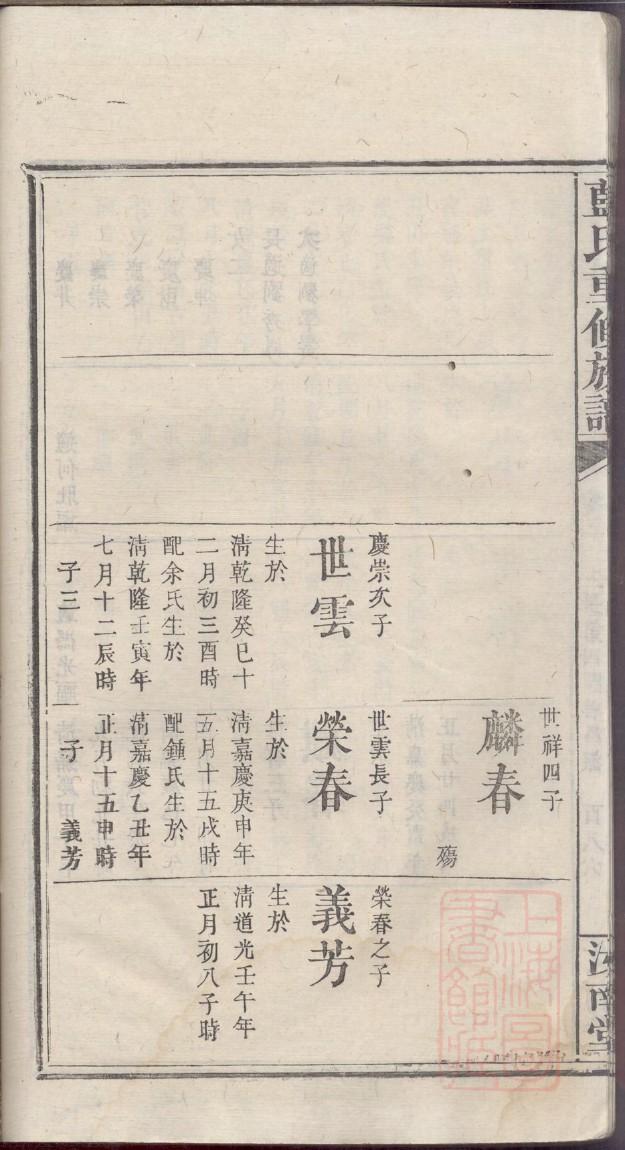 藍氏重修族譜
汝南堂
世祥四子
麟春
殤
慶崇次子
世雲
生於
淸乾隆癸巳十
二月初三酉時
配余氏生於
淸乾隆壬寅年
七月十二辰時
子三
世雲長子
榮春
生於
淸嘉慶庚申年
五月十五戌時
配鍾氏生於
淸嘉慶乙丑年
正月十五申時
一子 義芳
榮春之子
義芳
生於
淸道光壬午年
正月初八子時
上海圖書館藏